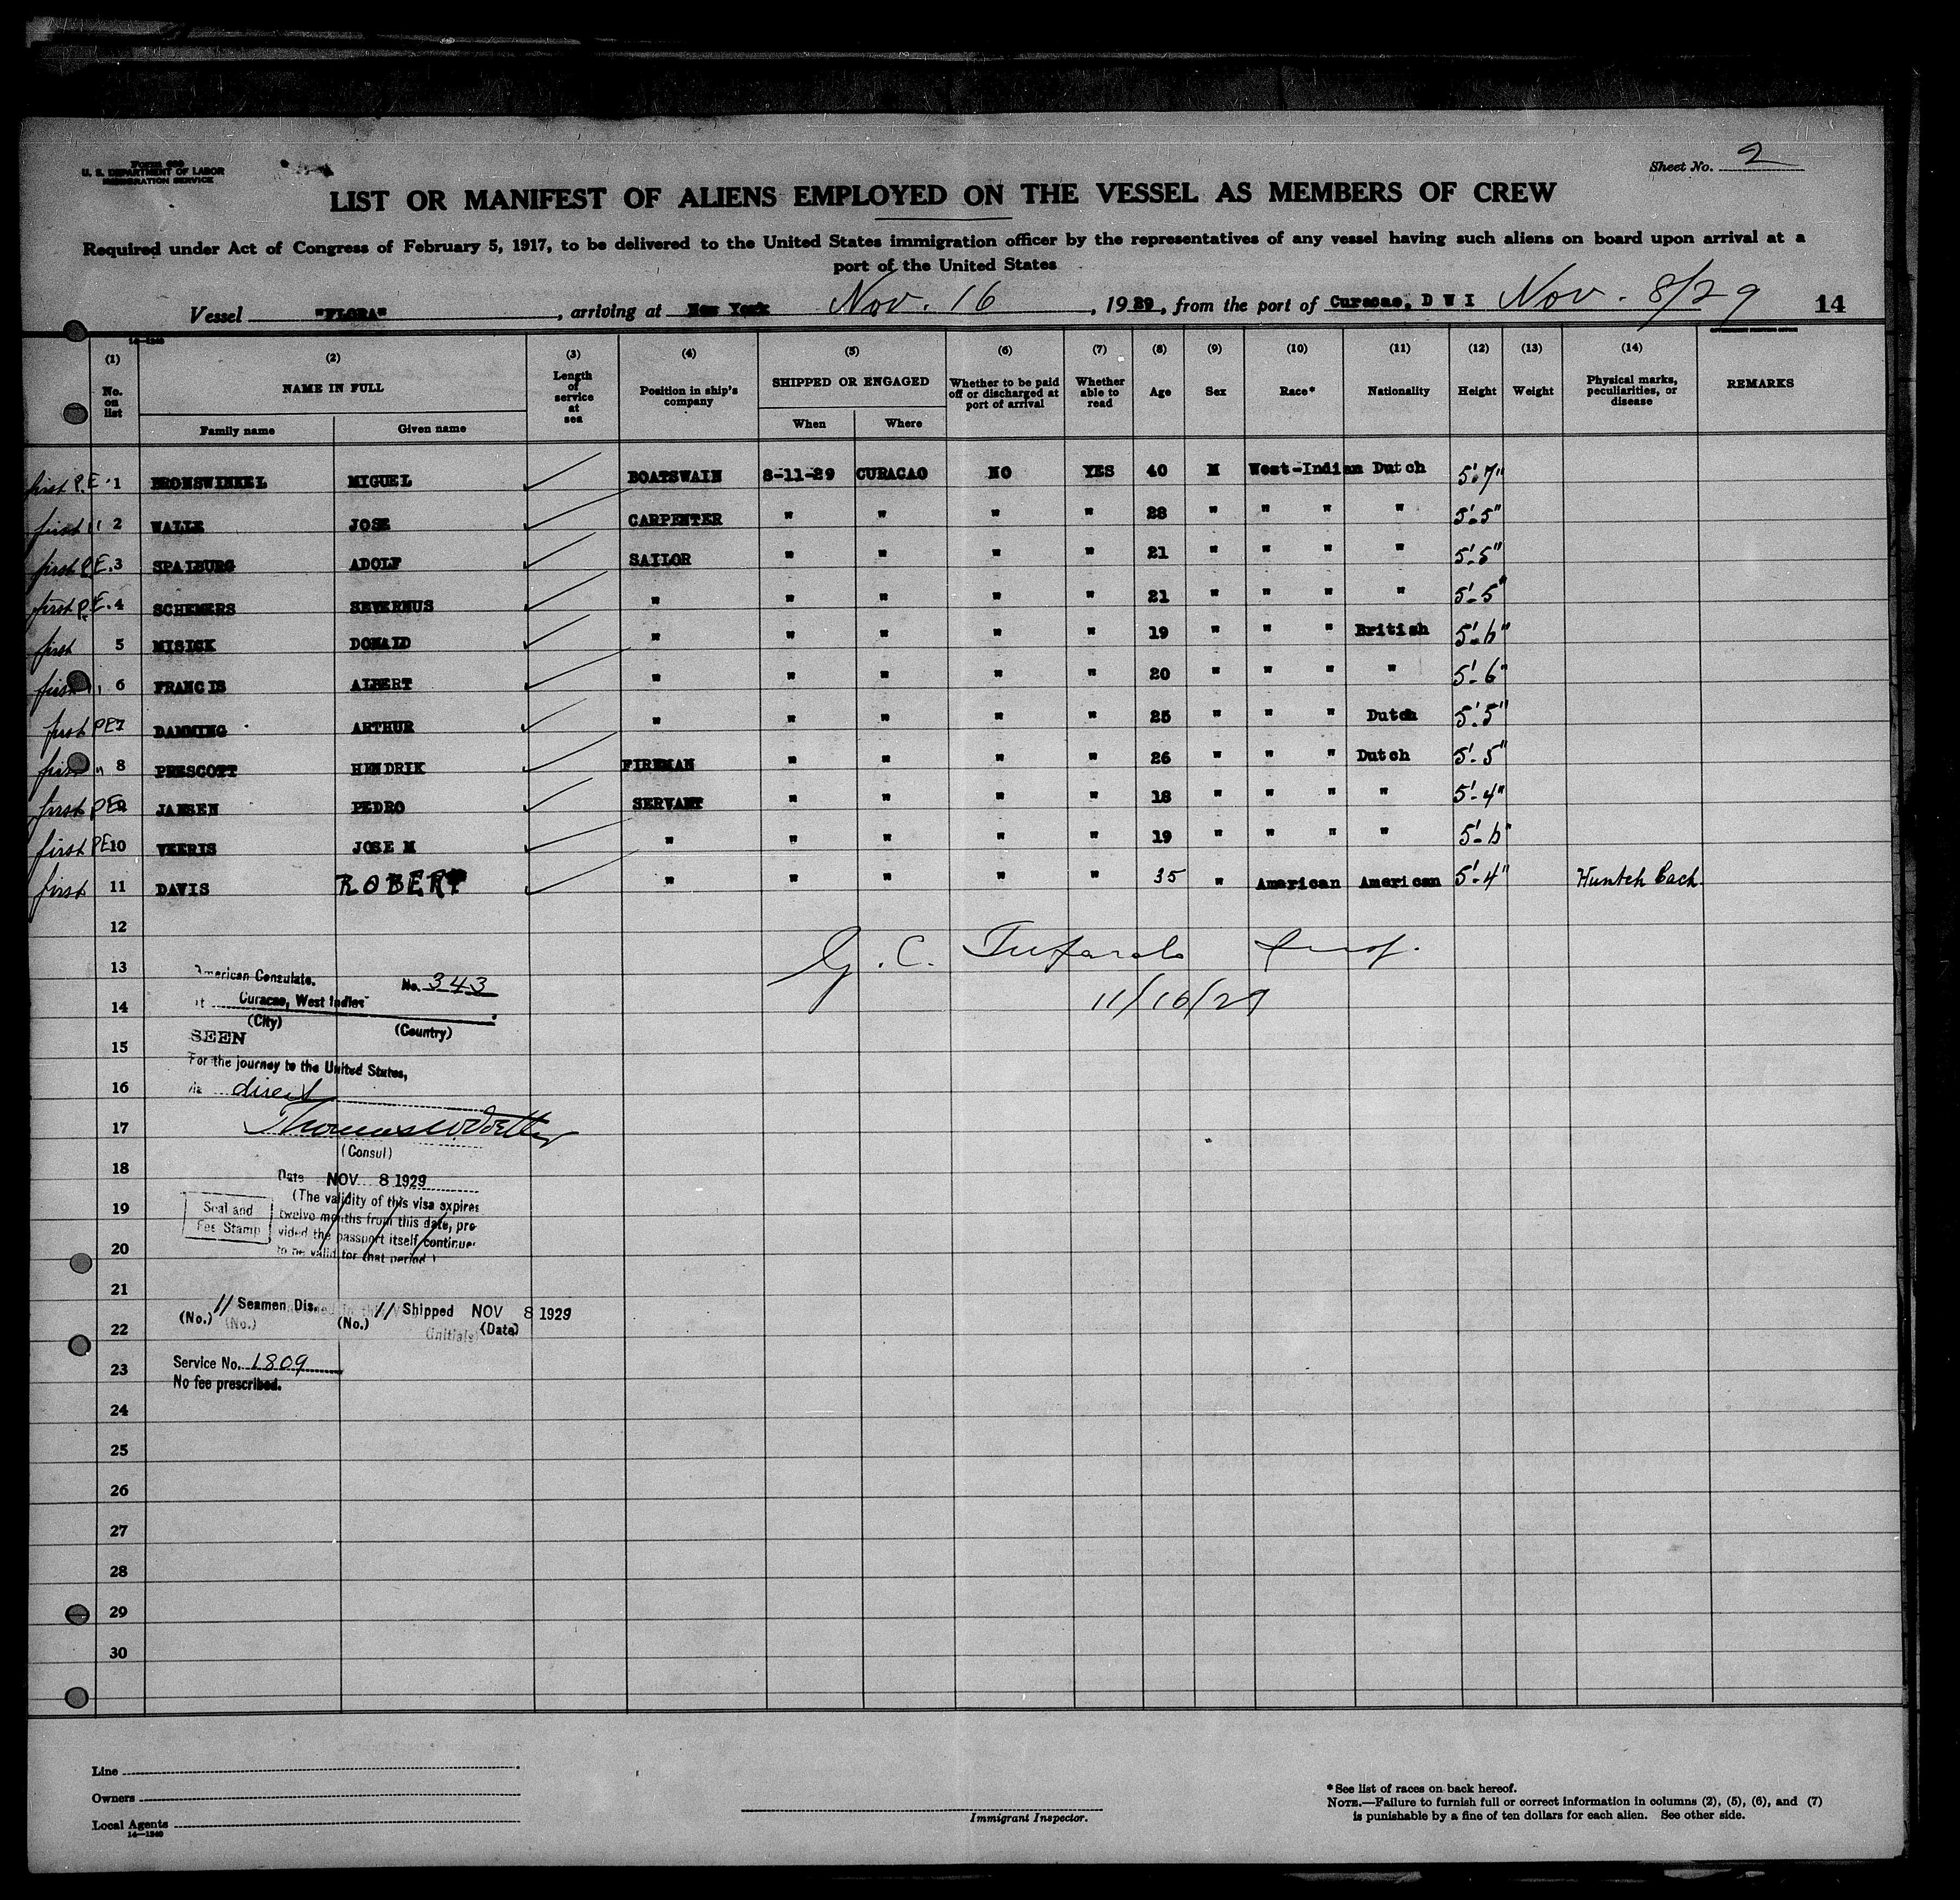 Form 689
U. S. DEPARTMENT OF LABOR
IMMIGRATION SERVICE
Sheet No. 2
LIST OR MANIFEST OF ALIENS EMPLOYED ON THE VESSEL AS MEMBERS OF CREW
Required under Act of Congress of February 5, 1917, to be delivered to the United States immigration officer by the representatives of any vessel having such aliens on board upon arrival at a
port of the United States
Vessel "FLORA", arriving at New York Nov. 16, 1929, from the port of Curacao, D W I Nov. 8/29 14
(1) (2) (3) (4) (5) (6) (7) (8) (9) (10) (11) (12) (13) (14)
No. on list NAME IN FULL Length of service at sea Position in ship's company SHIPPED OR ENGAGED Whether to be paid off or discharged at port of arrival Whether able to read Age Sex Race* Nationality Height Weight Physical marks, peculiarities, or disease REMARKS
Family name Given name When Where
first P.E. 1 BRONSWINKEL MIGUEL BOATSWAIN 8-11-29 CURACAO NO YES 40 M West-Indian Dutch 5'.7"
first " 2 WALLE JOSE CARPENTER " " " " 28 " " " " 5'-5"
first P.E. 3 SPALBURG ADOLF SAILOR " " " " 21 " " " " 5'-5"
first P.E. 4 SCHEMERS SEVERNUS " " " " " 21 " " " " 5'-5"
first 5 MISICK DONALD " " " " " 19 " " " British 5'-6"
first " 6 FRANCIS ALBERT " " " " " 20 " " " " 5'-6"
first PE 7 DAMMING ARTHUR " " " " " 25 " " " Dutch 5'.5"
first " 8 PRESCOTT HENDRIK FIREMAN " " " " 26 " " " Dutch 5'-5"
first PE 9 JANSEN PEDRO SERVANT " " " " 18 " " " " 5'-4"
first PE 10 VEERIS JOSE M " " " " " 19 " " " " 5'-6"
first 11 DAVIS ROBERT " " " " " 35 " American American 5'-4" Huntch back
12
G. C.
13
American Consulate. No. 343
11/16/29
14
at Curacao, West Indies
(City) (Country)
SEEN
15
For the journey to the United States,
16
via direct
17
(Consul)
18
Date NOV 8 1929
(The validity of this visa expires
19
Seal and
Fee Stamp
twelve months from this date, pro-
vided the passport itself continues
20
to be valid for that period)
21
(No.) 11 Seamen Dis. (No.) 11 Shipped NOV 8 1929
(No.) (Initials) (Date)
22
Service No. 1809
23
No fee prescribed.
24
25
26
27
28
29
30
Line
Owners
Local Agents
14—1240
Immigrant Inspector.
*See list of races on back hereof.
NOTE.—Failure to furnish full or correct information in columns (2), (5), (6), and (7)
is punishable by a fine of ten dollars for each alien. See other side.